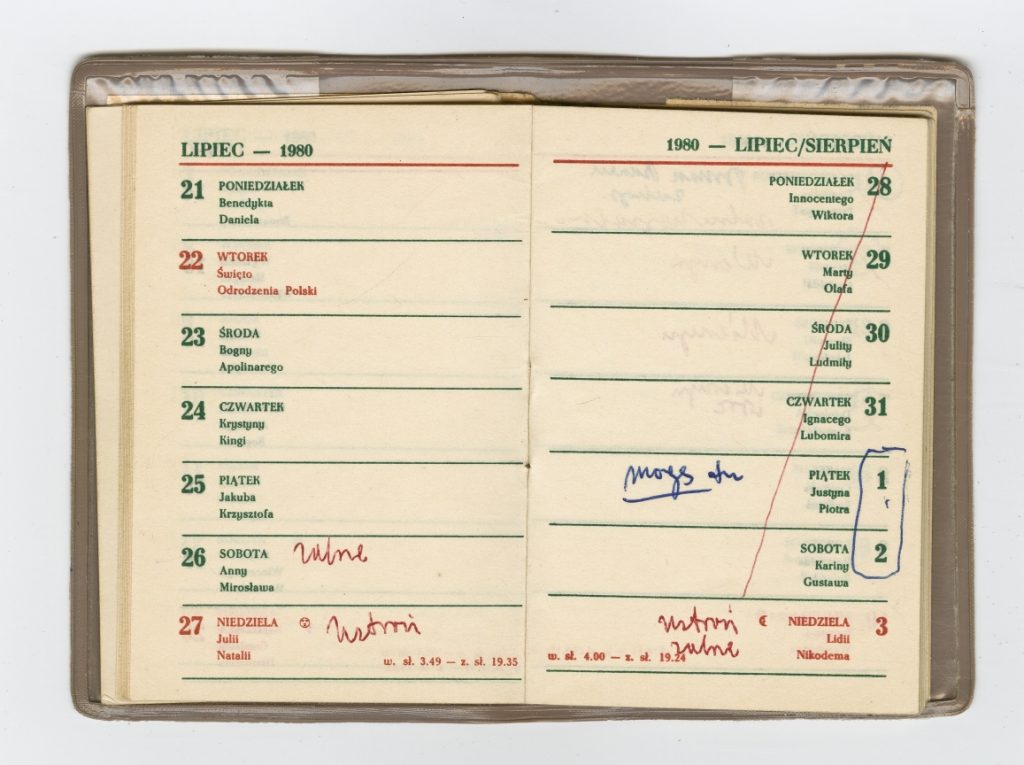 LIPIEC — 1980
21 PONIEDZIAŁEK
Benedykta
Daniela
22 WTOREK
Święto
Odrodzenia Polski
23 ŚRODA
Bogny
Apolinarego
24 CZWARTEK
Krystyny
Kingi
25 PIĄTEK
Jakuba
Krzysztofa
26 SOBOTA zalne
Anny
Mirosława
27 NIEDZIELA Ustroń
Julii
Natalii
w. sł. 3.49 — z. sł. 19.35
1980 — LIPIEC/SIERPIEŃ
PONIEDZIAŁEK 28
Innocentego
Wiktora
WTOREK 29
Marty
Olafa
ŚRODA 30
Julity
Ludmiły
CZWARTEK 31
Ignacego
Lubomira
PIĄTEK 1
Justyna
Piotra
SOBOTA 2
Kariny
Gustawa
Ustroń ☾ NIEDZIELA 3
zalne Lidii
w. sł. 4.00 — z. sł. 19.24 Nikodema